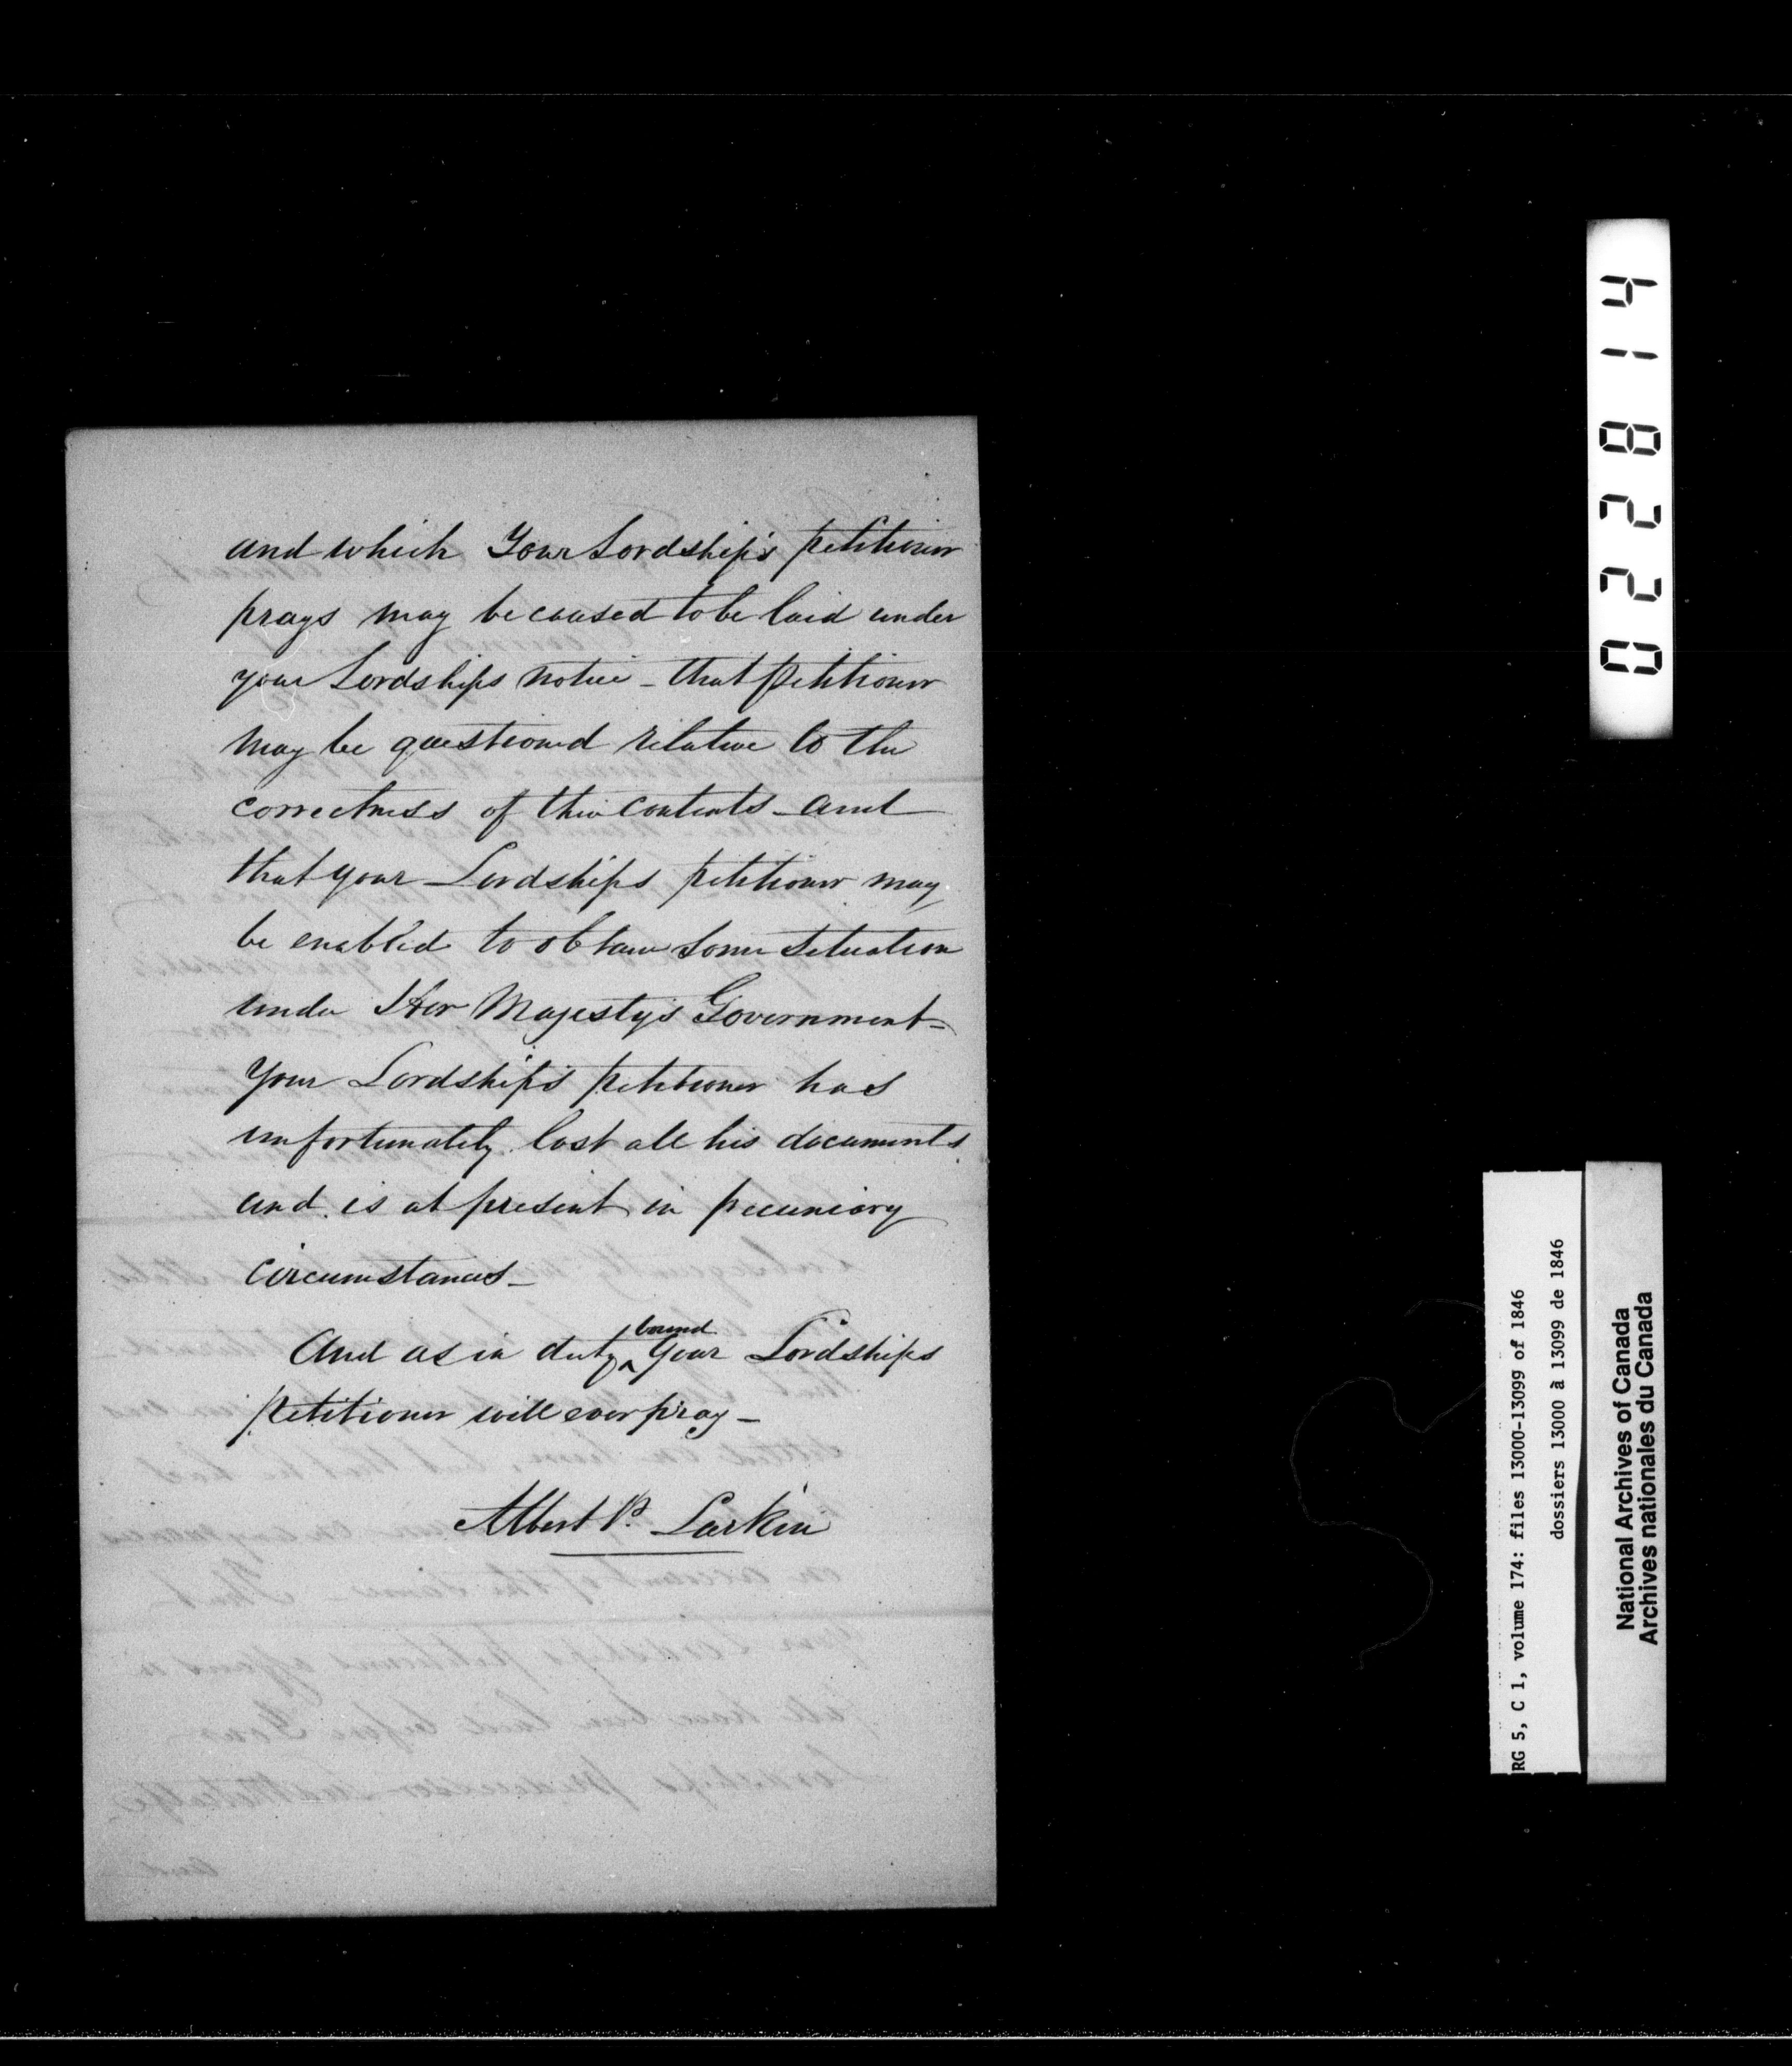 and which Your Lordship's petitioner
prays may be caused to be laid under
your Lordships notice - that petitioner
may be questioned relative to the
correctness of their contents - and
that your Lordships petitioner may
be enabled to obtain some situation
under Her Majesty's Government -
Your Lordship's petitioner has
unfortunately lost all his documents
and is at present in pecuniary
circumstances -
And as in duty bound your Lordships
petitioner will ever pray -
Albert P. Larkin
022814
RG 5, C 1, volume 174: files 13000-13099 of 1846
dossiers 13000 à 13099 de 1846
National Archives of Canada
Archives nationales du Canada